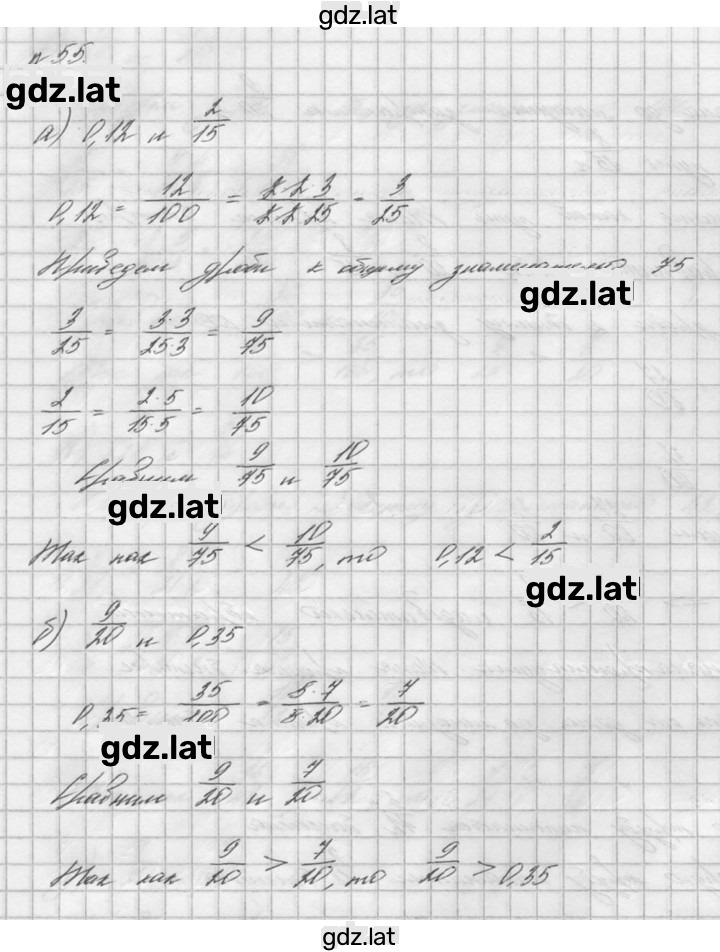 gdz.lat
п 55.
gdz.lat
а) 0,12 и 2/15
0,12 = 12/100 = 2·2·3/2·2·25 = 3/25
Приведем дроби к общему знаменателю 75
gdz.lat
3/25 = 3·3/25·3 = 9/75
2/15 = 2·5/15·5 = 10/75
Сравним 9/75 и 10/75
gdz.lat
Так как 9/75 < 10/75, то 0,12 < 2/15
gdz.lat
б) 9/20 и 0,35
0,35 = 35/100 = 5·7/5·20 = 7/20
gdz.lat
Сравним 9/20 и 7/20
Так как 9/20 > 7/20, то 9/20 > 0,35
gdz.lat